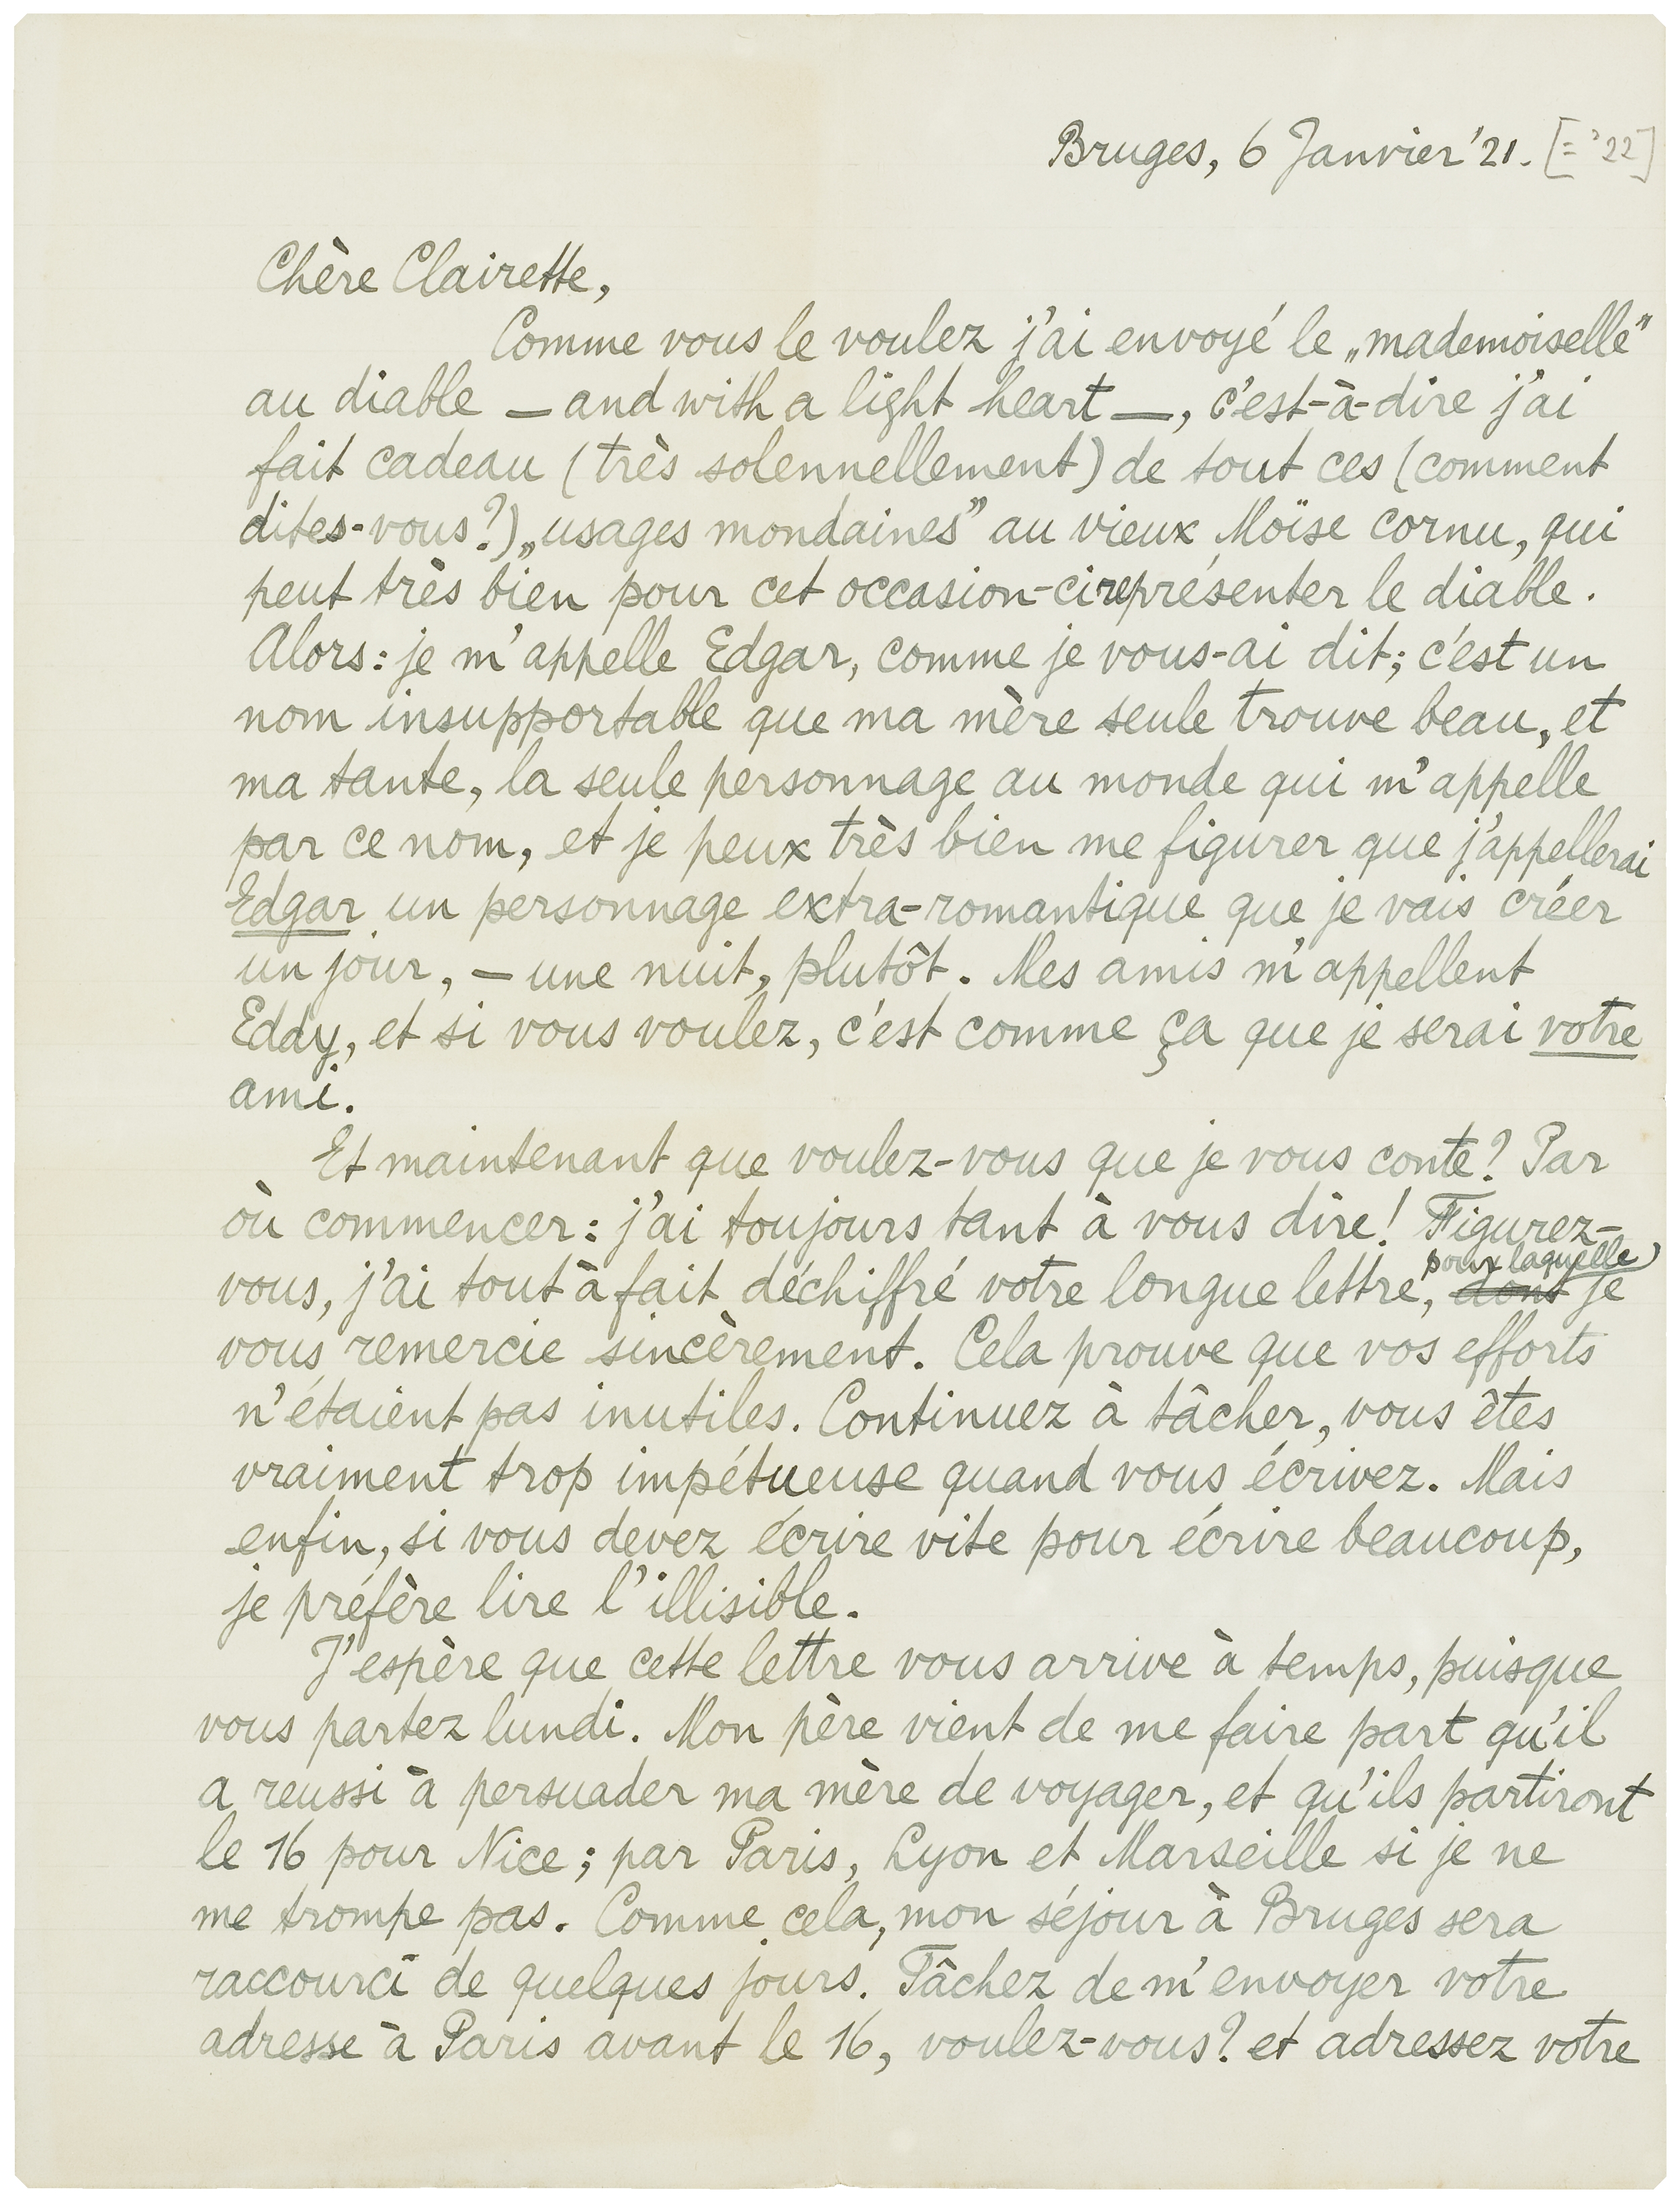 Bruges, 6 Janvier '21. [= '22]
Chère Clairette,
Comme vous le voulez j'ai envoyé le „mademoiselle"
au diable — and with a light heart —, c'est-à-dire j'ai
fait cadeau (très solennellement) de tout ces (comment
dites-vous?) „usages mondaines" au vieux Moïse cornu, qui
peut très bien pour cet occasion-ci représenter le diable.
Alors: je m'appelle Edgar, comme je vous-ai dit; c'est un
nom insupportable que ma mère seule trouve beau, et
ma tante, la seule personnage au monde qui m'appelle
par ce nom, et je peux très bien me figurer que j'appellerai
Edgar un personnage extra-romantique que je vais créer
un jour, — une nuit, plutôt. Mes amis m'appellent
Eddy, et si vous voulez, c'est comme ça que je serai votre
ami.
Et maintenant que voulez-vous que je vous conte? Par
où commencer: j'ai toujours tant à vous dire! Figurez-
vous, j'ai tout à fait déchiffré votre longue lettre, dont pour laquelle je
vous remercie sincèrement. Cela prouve que vos efforts
n'étaient pas inutiles. Continuez à tâcher, vous êtes
vraiment trop impétueuse quand vous écrivez. Mais
enfin, si vous devez écrire vite pour écrire beaucoup,
je préfère lire l'illisible.
J'espère que cette lettre vous arrive à temps, puisque
vous partez lundi. Mon père vient de me faire part qu'il
a reussi à persuader ma mère de voyager, et qu'ils partiront
le 16 pour Nice; par Paris, Lyon et Marseille si je ne
me trompe pas. Comme cela, mon séjour à Bruges sera
raccourci de quelques jours. Tâchez de m'envoyer votre
adresse à Paris avant le 16, voulez-vous? et adressez votre